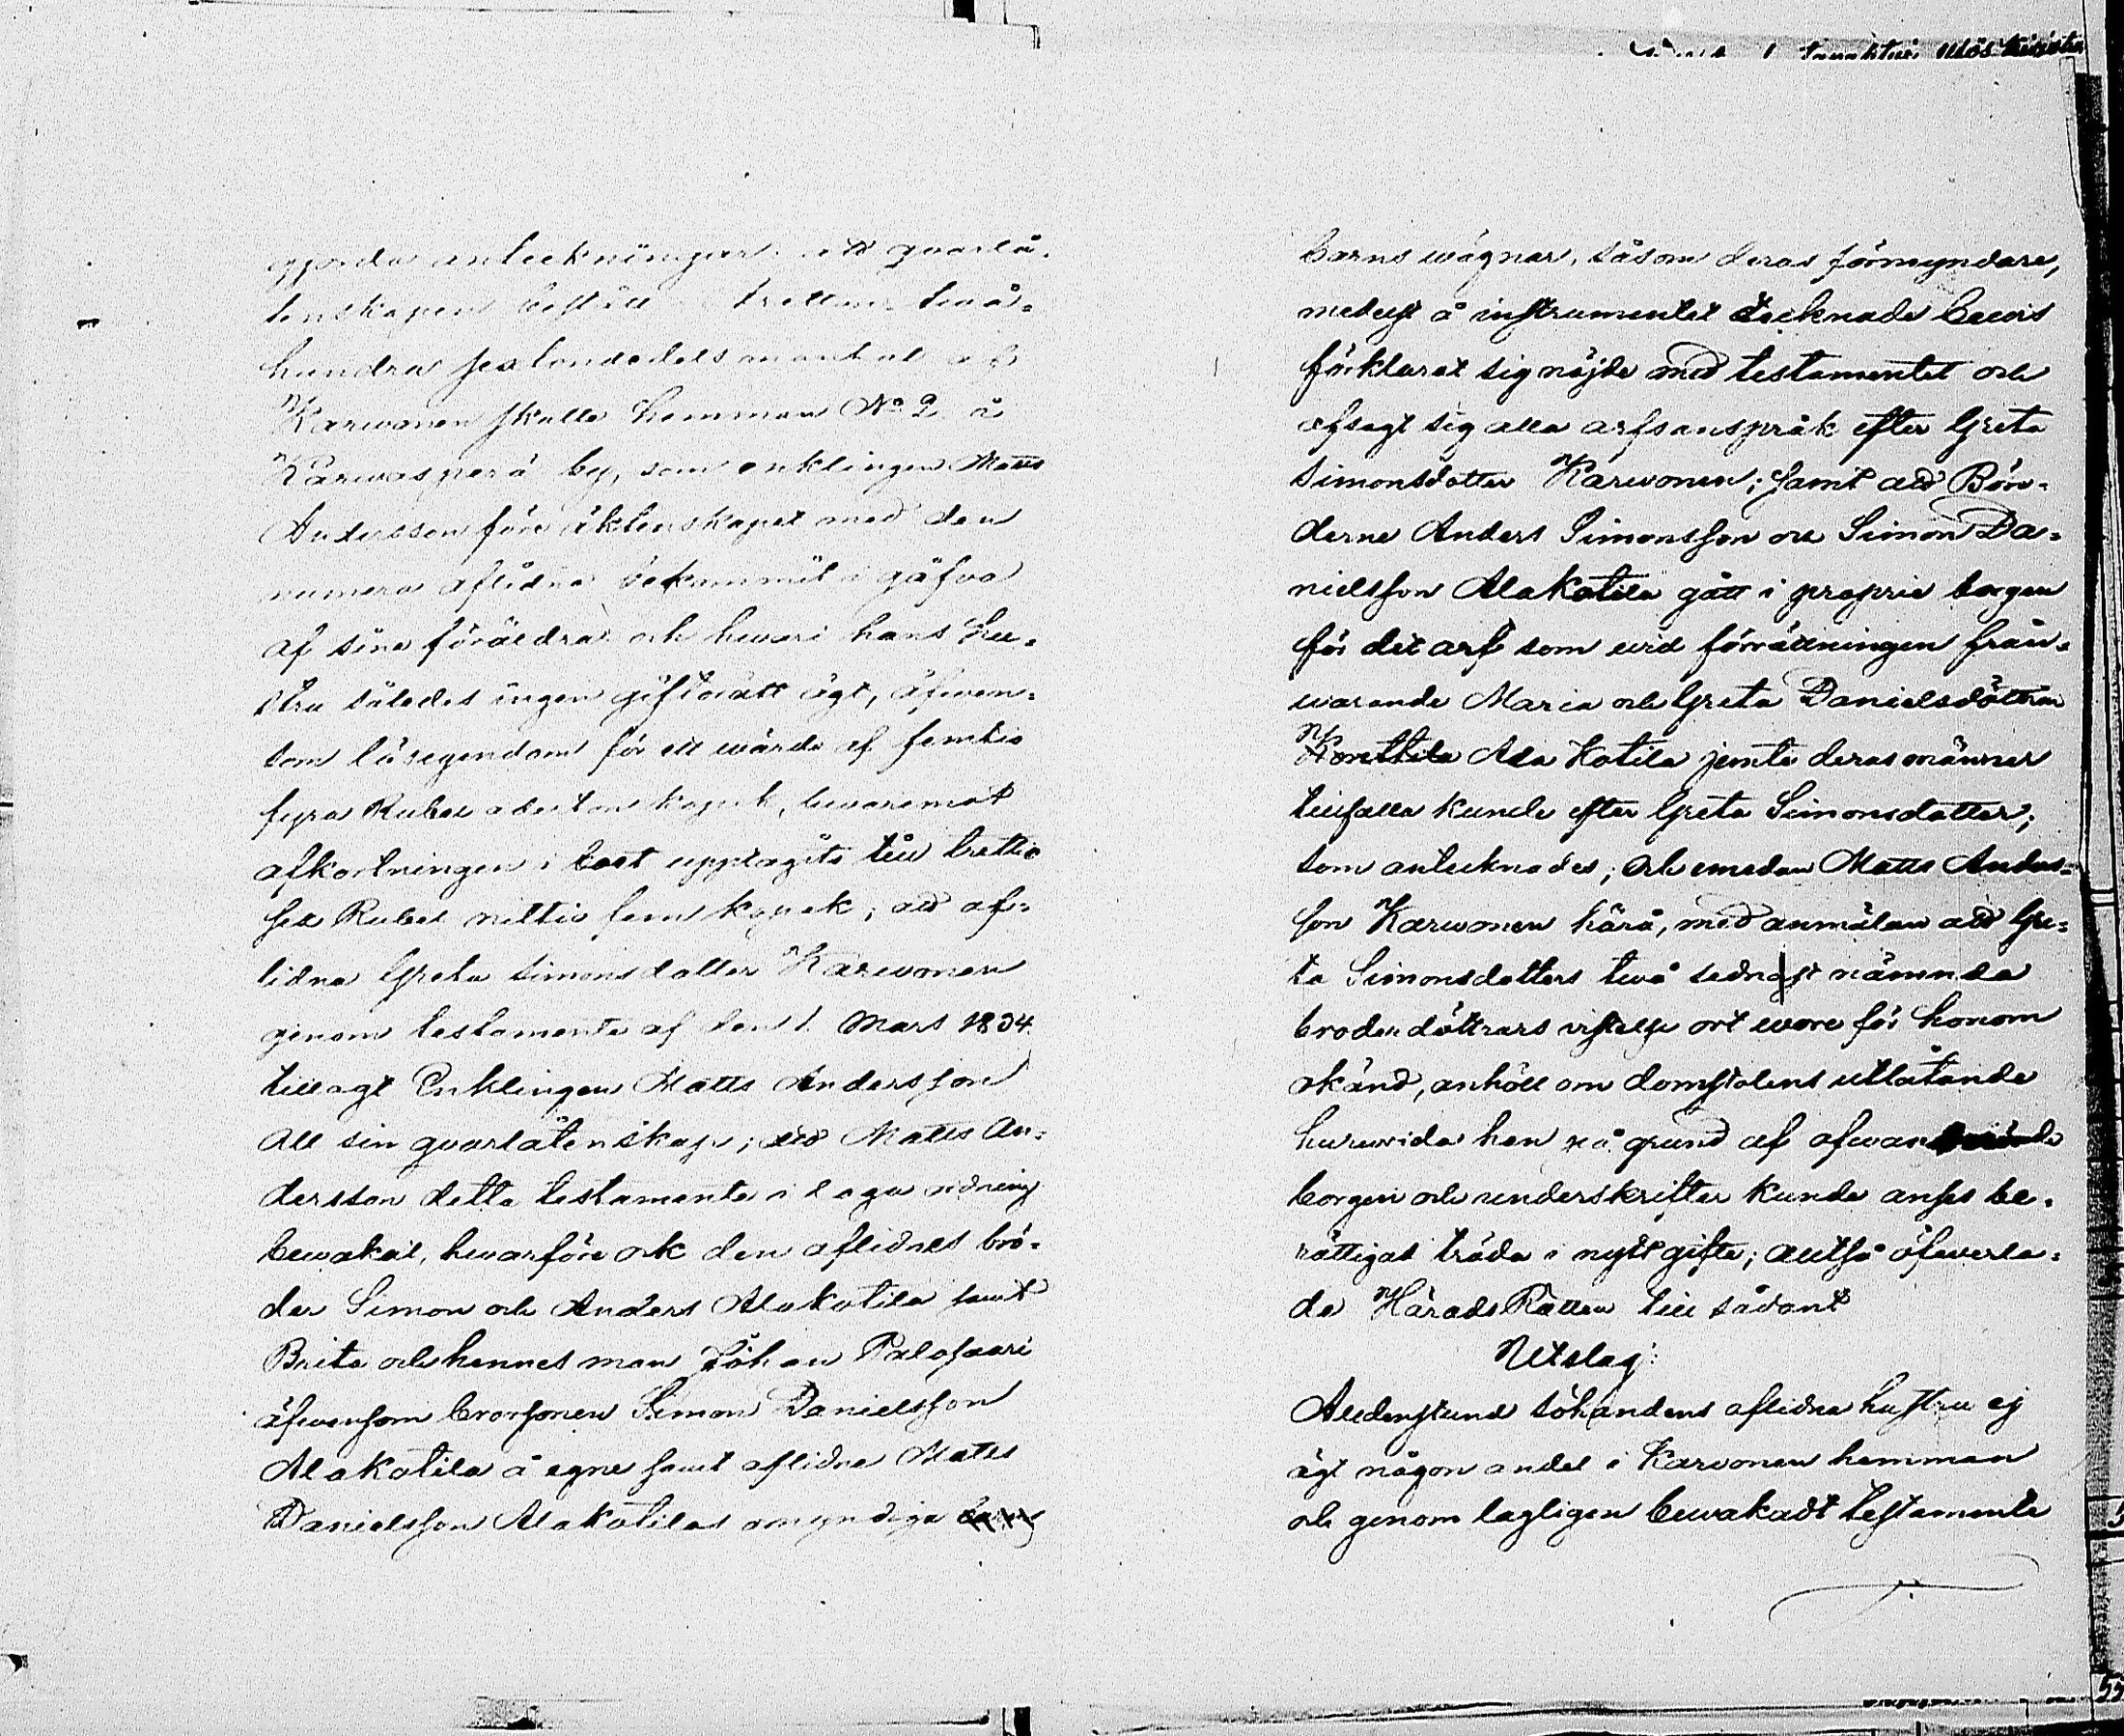 gjorda anteckningar att qvarlå-
tenskapen bestått tretton tvåa-
hundra sextondedels mantal af
Karwonen skatte hemman No 2 i
Karwasperä by, som enklingen Matts
Andersson före äktenskapet med den
numera aflidna bekommit i gåfva
af sina föräldrar och hwari hans hu-
stru således ingen giftorätt ägt, äfwen-
som lösegendom för ett wärde af femtio
fyra Rubel aderton kopek, hwaremot
afkortningen i boet upptagits till trettio
sex Rubel nittio fem kopek; att af-
lidna Greta Simonsdotter Karwonen
genom testamente af den 1 Mars 1834
tillagt Enklingen Matts Andersson
All sin qvarlåtenskap; att Matts An-
dersson detta testamente i laga ordning
bewakat, hwarföre ock den aflidnes brö-
der Simon och Anders Alakotila samt
Brita och hennes man Johan Palosaari
äfwensom brorsonen Simon Danielsson
Alakotila å egne samt aflidne Matts
Danielsson Alakotilas omyndiga barns
barns wägnar, såsom deras förmyndare,
medelst å instrumentet tecknade bewis
förklarat sig nöjde med testamentet och
afsagt sig alla arfsanspråk efter Greta
Simonsdotter Karwonen; samt att Bön-
derne Anders Simonsson och Simon Da-
nielsson Alakotila gått i proprie borgen
för det arf som wid förrättningen från-
warande Maria och Greta Danielsdöttrar
Konttila Ala Kotila jemte deras männer
tillfalla kunde efter Greta Simonsdotter;
som antecknades; Och emedan Matts Anders-
son Karwonen härå, med anmälan att Gre-
ta Simonsdotters twå sednast nämnda
broderdöttrars wistelse ort wore för honom
okänd, anhöll om domstolens utlåtande
huruwida han på grund af ofwan
borgen och underskrifter kunde anses be-
rättigad träda i nytt gifte; alltså öfwerla-
de HäradsRätten till sådant
Utslag:
Alldenstund sökandens aflidna hustru ej
ägt någon andel i Karwonen hemman
och genom lagligen bewakadt testamente